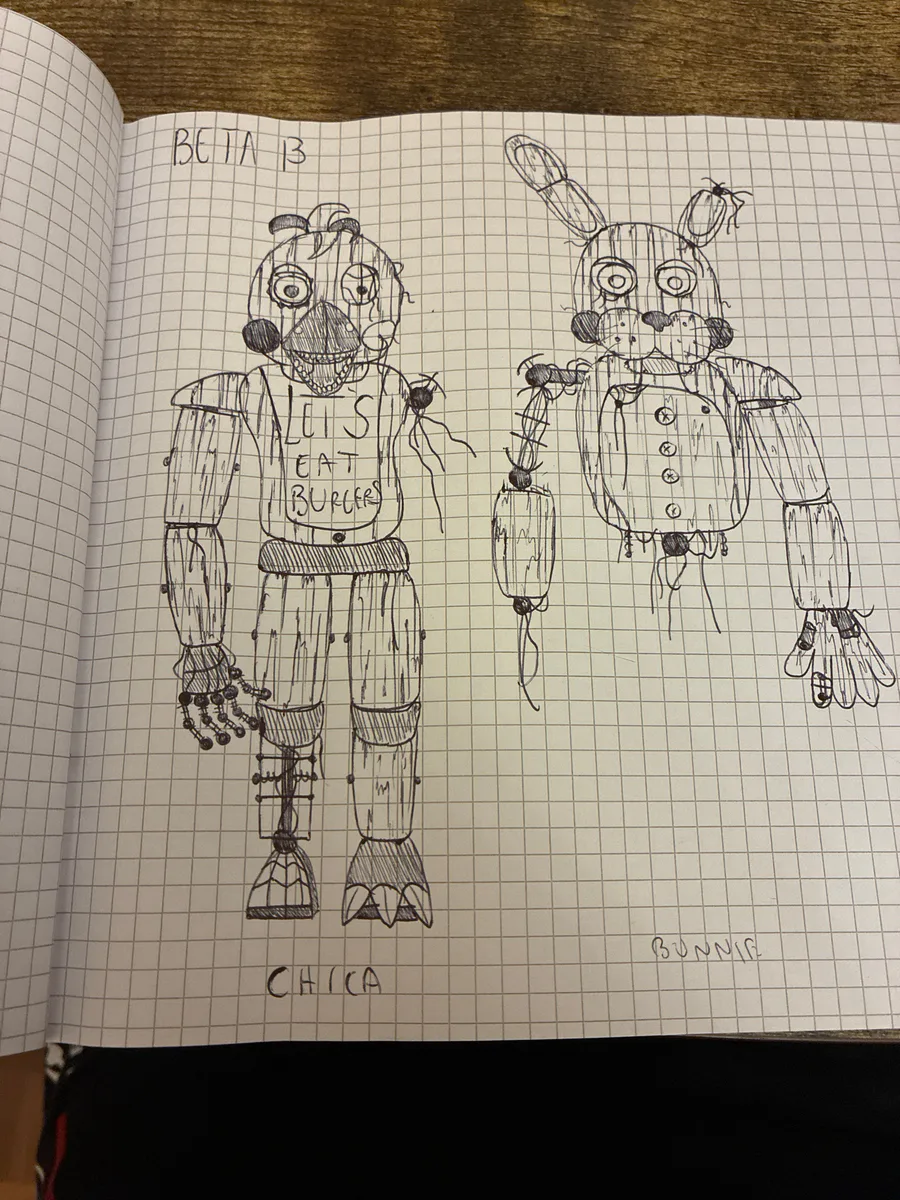 BETA β
LET'S
EAT
BURGERS
CHICA
BONNIE